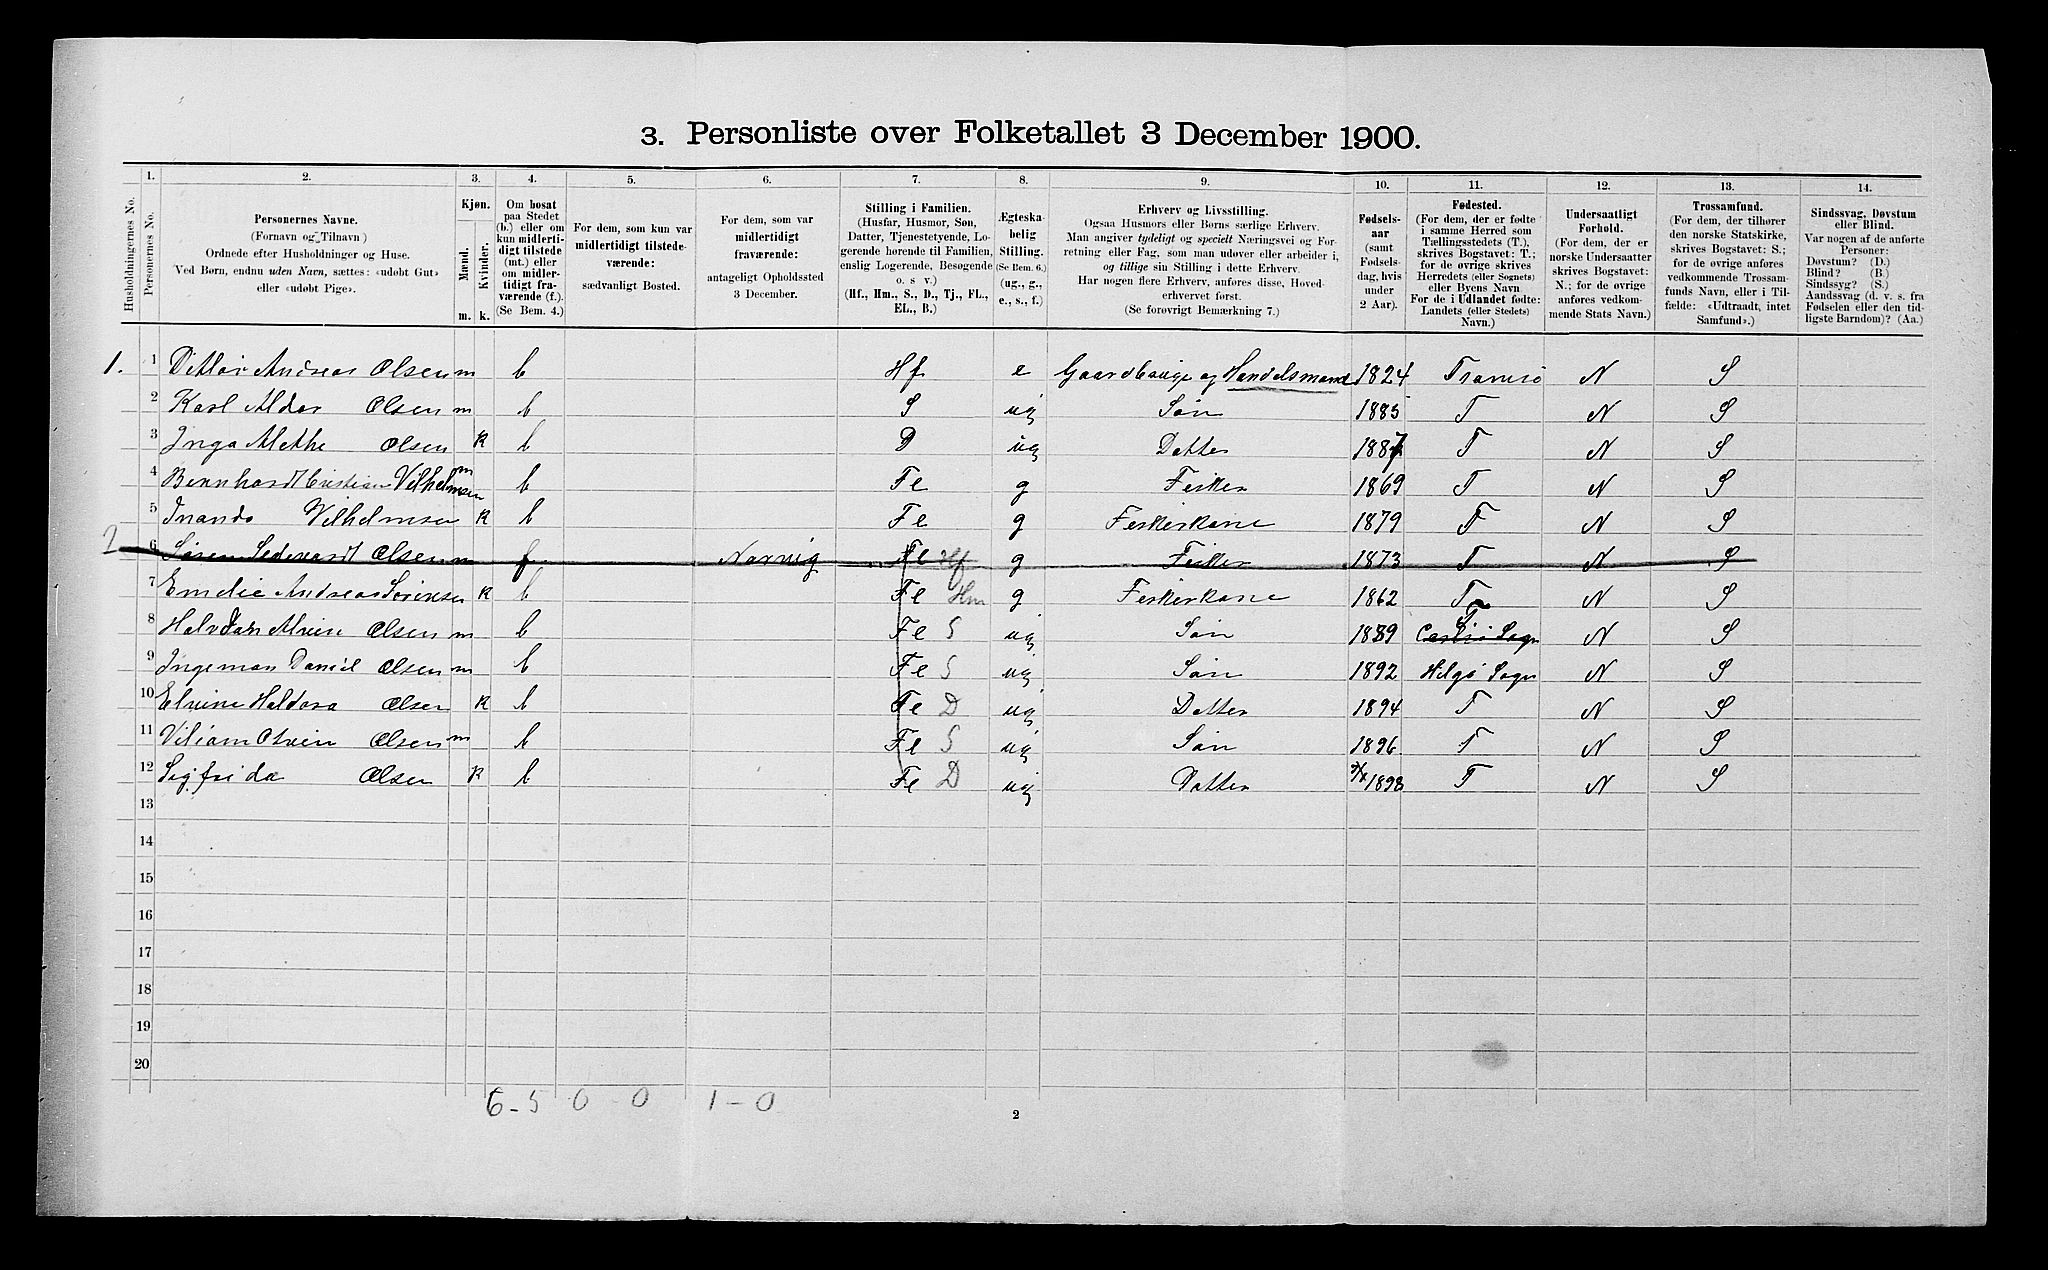 3. Personliste over Folketallet 3 December 1900.
1. 2. 3. 4. 5. 6. 7. 8. 9. 10. 11. 12. 13. 14.
Husholdningernes No.
Personernes No.
Personernes Navne.
(Fornavn og Tilnavn)
Ordnede efter Husholdninger og Huse.
Ved Børn, endnu uden Navn, sættes: «udøbt Gut»
eller «udøbt Pige».
Kjøn.
Mænd.
Kvinder.
m. k.
Om bosat
paa Stedet
(b.) eller om
kun midlerti-
digt tilstede
(mt.) eller
om midler-
tidigt fra-
værende (f.).
(Se Bem. 4.)
For dem, som kun var
midlertidigt tilstede-
værende:
sædvanligt Bosted.
For dem, som var
midlertidigt
fraværende:
antageligt Opholdssted
3 December.
Stilling i Familien.
(Husfar, Husmor, Søn,
Datter, Tjenestetyende, Lo-
gerende hørende til Familien,
enslig Logerende, Besøgende
o. s. v.)
(Hf., Hm., S., D., Tj., FL.,
EL., B.)
Ægteska-
belig
Stilling.
(Se Bem. 6.)
(ug., g.,
e., s., f.)
Erhverv og Livsstilling.
Ogsaa Husmors eller Børns særlige Erhverv.
Man angiver tydeligt og specielt Næringsvei og For-
retning eller Fag, som man udøver eller arbeider i,
og tillige sin Stilling i dette Erhverv.
Har nogen flere Erhverv, anføres disse, Hoved-
erhvervet først.
(Se forøvrigt Bemærkning 7.)
Fødsels-
aar
(samt
Fødsels-
dag, hvis
under
2 Aar).
Fødested.
(For dem, der er fødte
i samme Herred som
Tællingsstedets (T.),
skrives Bogstavet: T.;
for de øvrige skrives
Herredets (eller Sognets)
eller Byens Navn.
For de i Udlandet fødte:
Landets (eller Stedets)
Navn.)
Undersaatligt
Forhold.
(For dem, der er
norske Undersaatter
skrives Bogstavet:
N.; for de øvrige
anføres vedkom-
mende Stats Navn.)
Trossamfund.
(For dem, der tilhører
den norske Statskirke,
skrives Bogstavet: S.;
for de øvrige anføres
vedkommende Trossam-
funds Navn, eller i Til-
fælde: «Udtraadt, intet
Samfund».)
Sindssvag, Døvstum
eller Blind.
Var nogen af de anførte
Personer:
Døvstum? (D.)
Blind? (B.)
Sindssyg? (S.)
Aandssvag (d. v. s. fra
Fødselen eller den tid-
ligste Barndom)? (Aa.)
1. 1 Ditlov Andreas Olsen m b Hf e Gaardbruger og Handelsmand 1824 Tromsø N S
2 Karl Aldor Olsen m b S ug Søn 1885 T N S
3 Inga Methe Olsen K b D ug Datter 1887 T N S
4 Bernhardt Cristian Vilhelmsen m b Fl g Fisker 1869 T N S
5 Vilhelmsen K b Fl g Fiskerkone 1879 T N S
2 6 Søren Olsen m f Narvig Fl Hf g Fisker 1873 T N S
7 Emelie Andrea Sørensen K b Fl Hm g Fiskerkone 1862 T N S
8 Halvdan Alvin Olsen m b Fl S ug Søn 1889 T Sogn N S
9 Ingeman Daniel Olsen m b Fl S ug Søn 1892 Helgø Sogn N S
10 Elvine Haldora Olsen K b Fl D ug Datter 1894 T N S
11 Viliam Olsen m b Fl S ug Søn 1896 T N S
12 Sigfrida Olsen K b Fl D ug Datter 1898 T N S
13
14
15
16
17
18
19
20
6-5 0-0 1-0
2